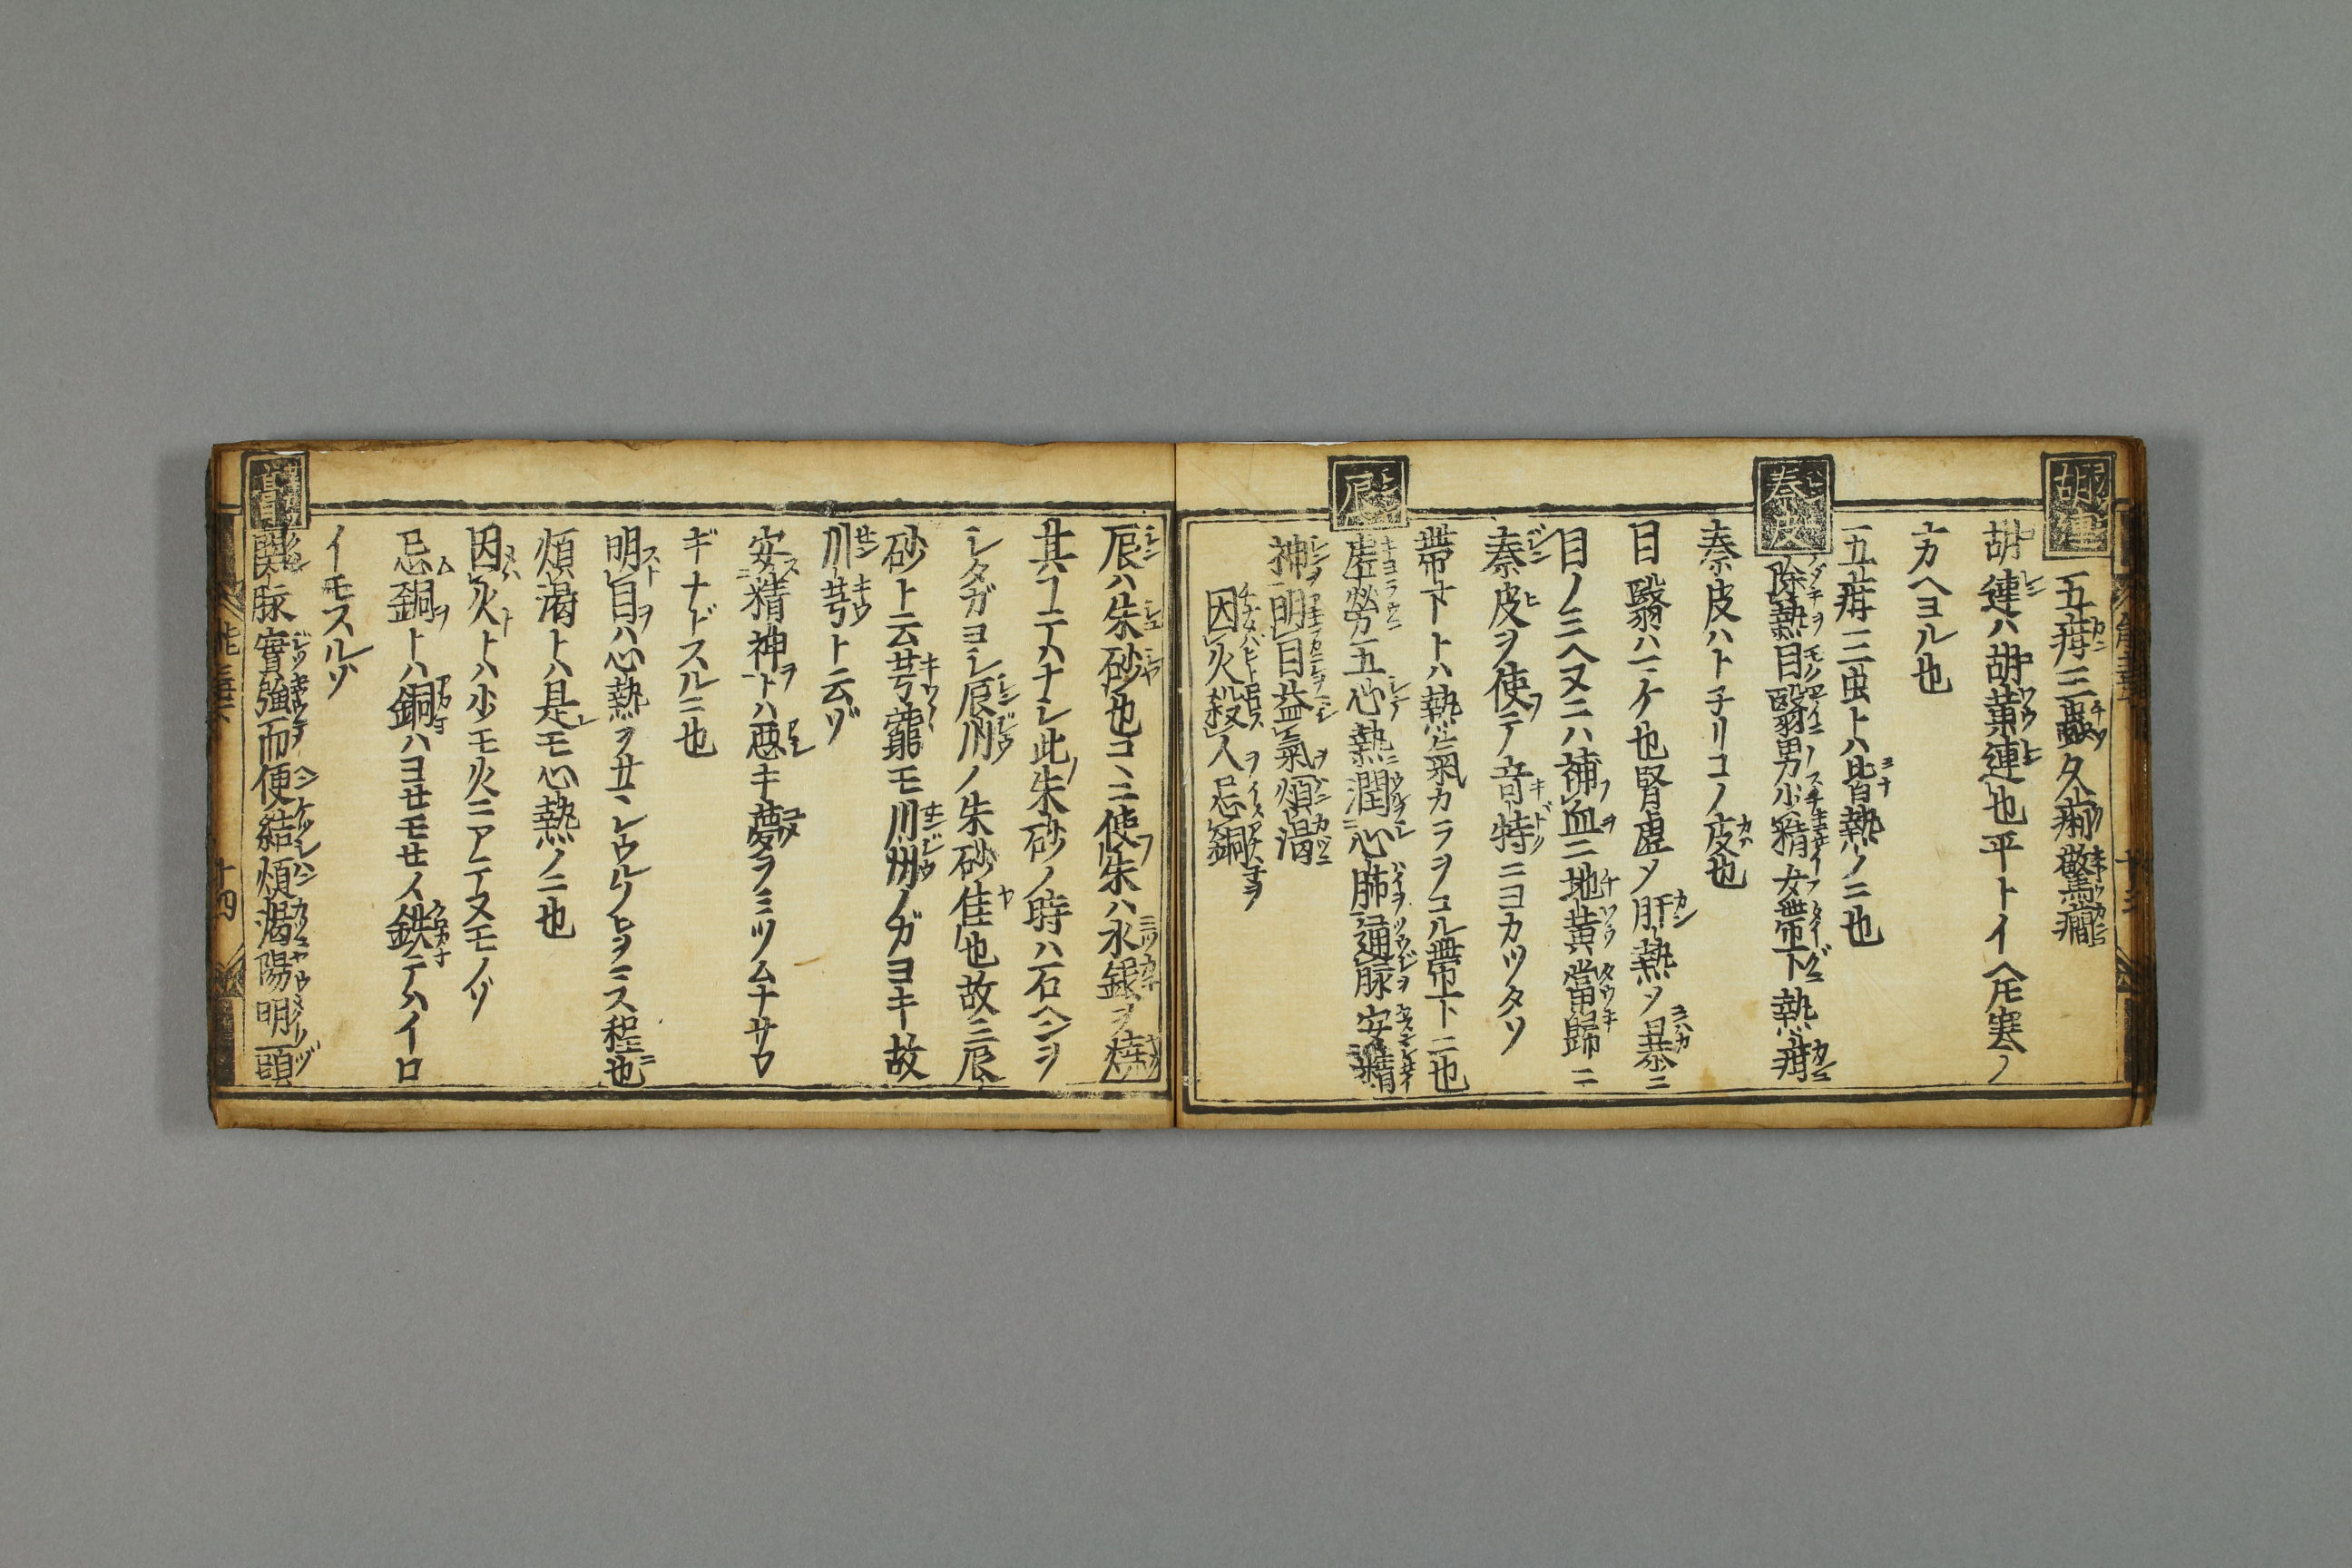 胡連
五疳三蟲久痢驚癇
胡連ハ胡黄連也平トイヘ𪜈寒ノ
方ヘヨル也
五疳三虫トハ皆熱ノニ也
秦皮
除熱目翳男少精女帯下熱疳
秦皮ハトチリコノ皮也
目翳ハ一ケ也腎虚メ肝熱メ暴ニ
目ノミヘヌニハ補血ニ地黄當歸ニ
秦皮ヲ使テ奇特ニヨカツタソ
帯下トハ熱氣カラヲコル帯下ニ也
辰
虚勞五心熱潤心肺通脉安精
神明目益氣煩渇
因火殺人忌銅
辰ハ朱砂也コヽニ使朱ハ水銀ヲ焼
其コテハナシ此朱砂ノ時ハ石ヘンヲ
シタガヨシ辰州ノ朱砂佳也故ニ辰
砂ト云芎藭モ川州ノガヨキ故
川芎ト云ヅ
安精神トハ悪キ夢ヲミツムナサワ
ギナドスルニ也
明目ハ心熱ヲサンシウルリヒヲニス程也
煩渇トハ是モ心熱ノニ也
因火トハ少モ火ニアテヌモノヅ
忌銅トハ銅ハヨセモセイ鉄テハイロ
イモスルソ
関脉實強而便結煩渇陽明頭
十四